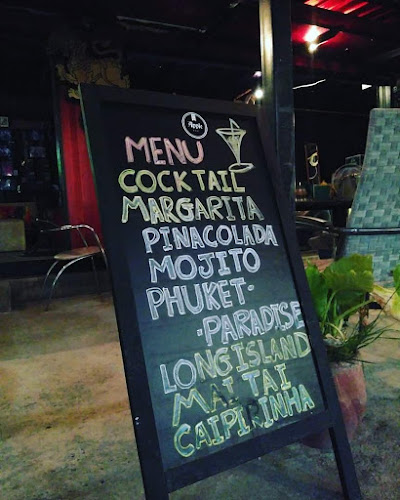 MENU
COCKTAIL
MARGARITA
PINACOLADA
MOJITO
PHUKET.
.PARADISE
LONG ISLAND
MAI TAI
CAIPIRINHA